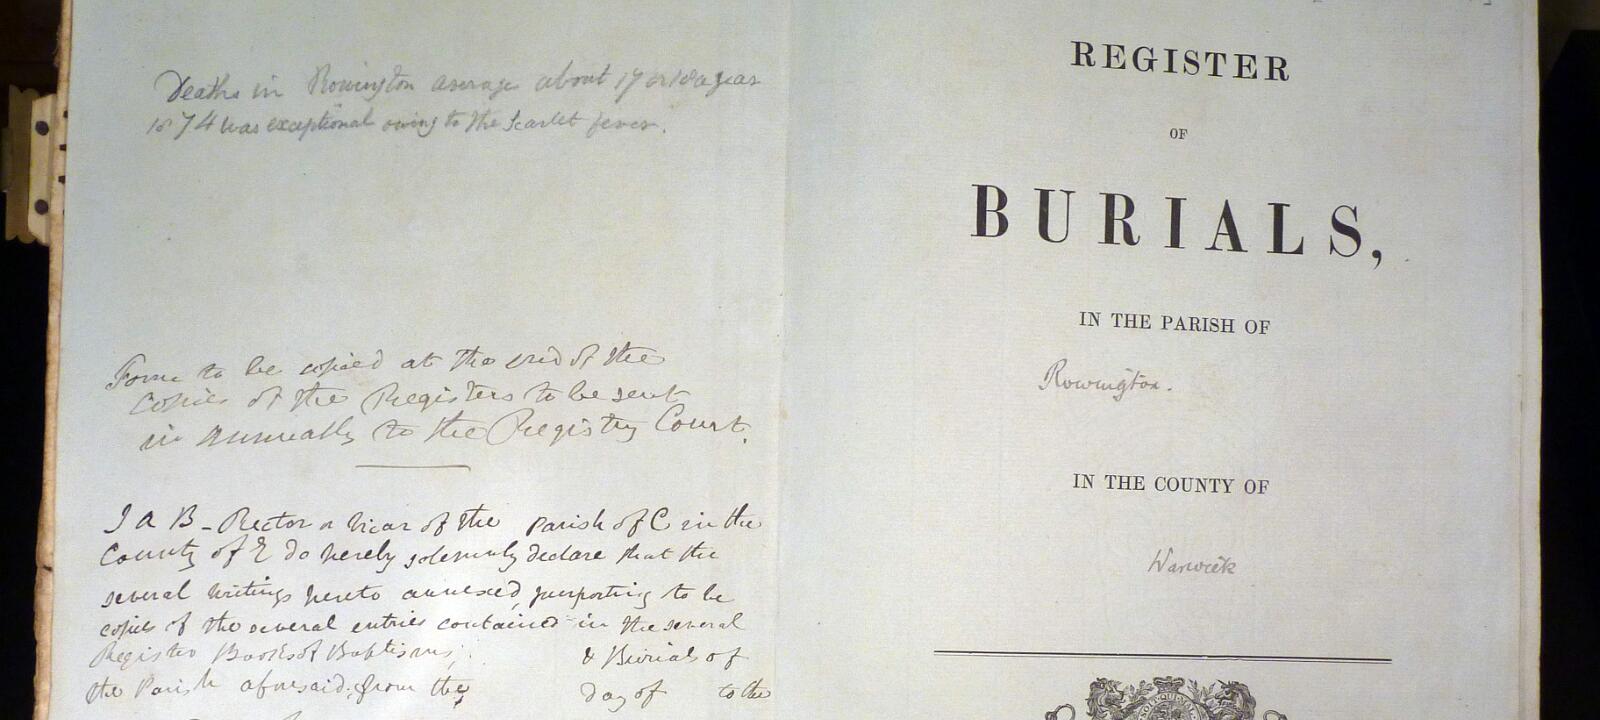 Deaths in Rowington average about 17 or 18 a year
1874 was exceptional owing to the Scarlet fever.
Form to be copied at the end of the
Copies of the Registers to be sent
in annually to the Registry Court.
I A B - Rector or Vicar of the parish of C in the
County of E do hereby solemnly declare that the
several writings hereto annexed, purporting to be
copies of the several entries contained in the several
Register Books of Baptisms, & Burials of
the Parish aforesaid, from the day of to the
REGISTER
OF
BURIALS,
IN THE PARISH OF
Rowington.
IN THE COUNTY OF
Warwick